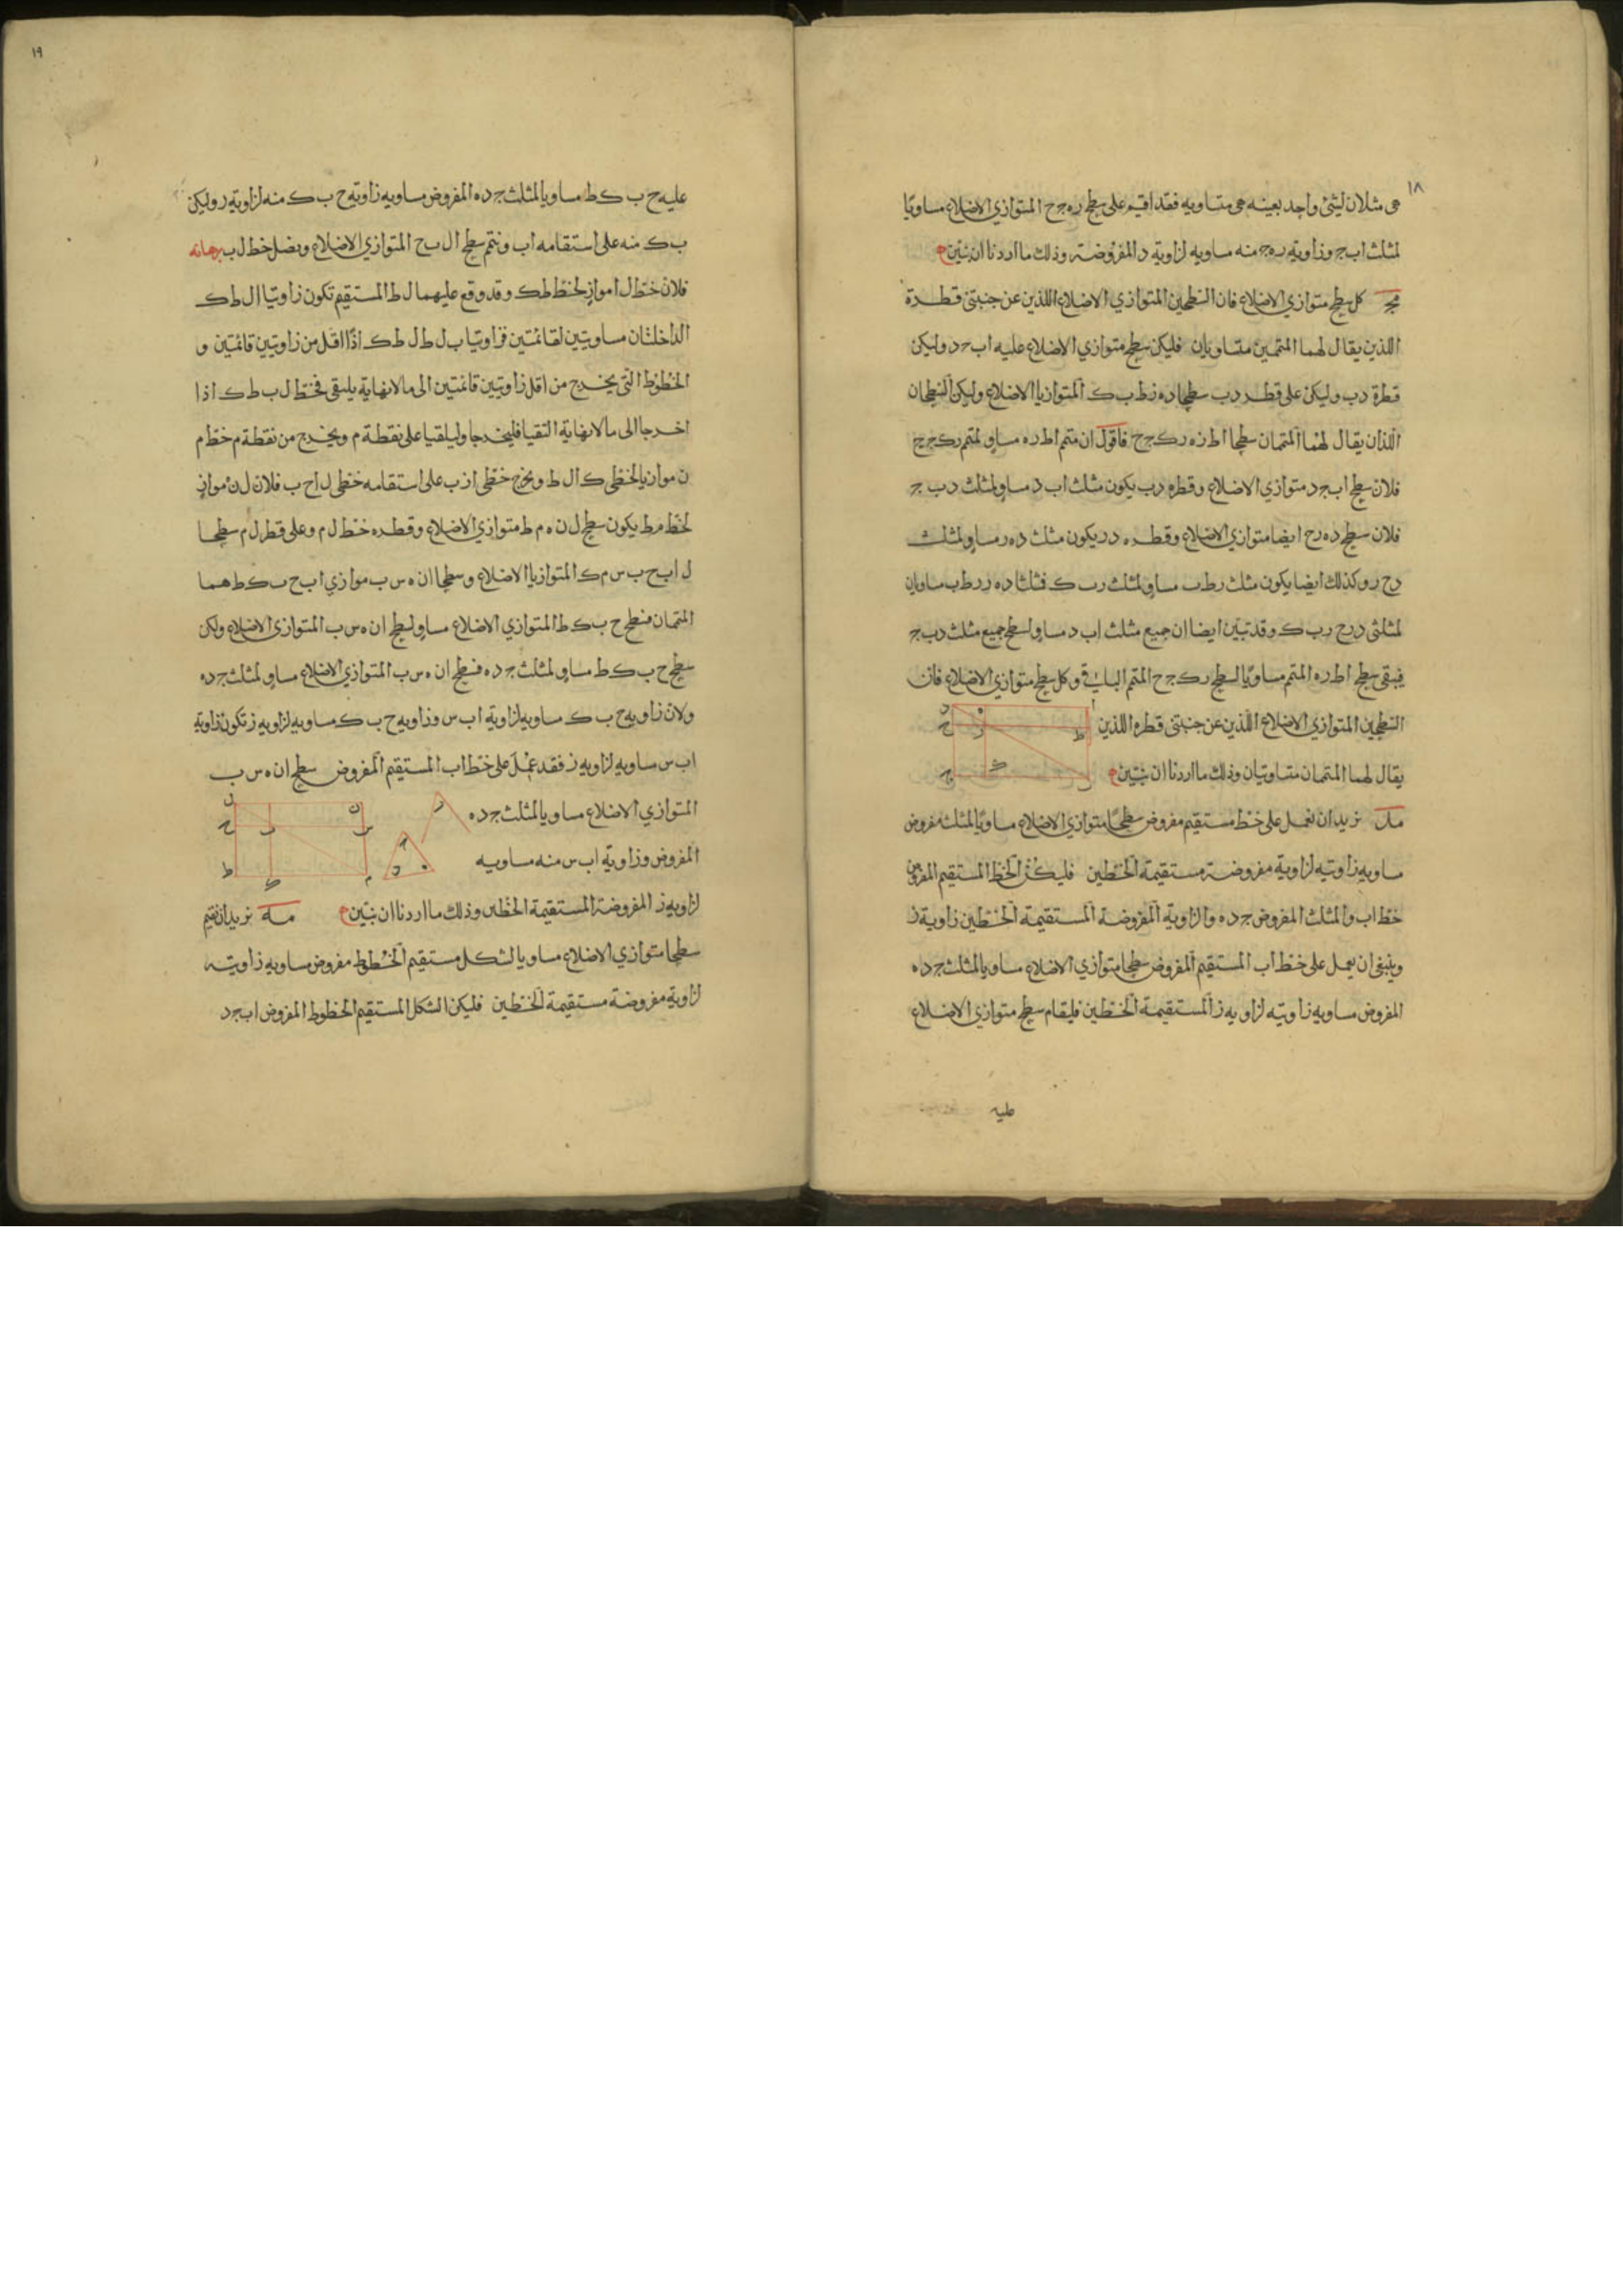 ١٨
هى مثلان لشئ واحد بعينه هى متساويه فقد اقيم على سطح ره ج ح المتوازي الاضلاع مساويًا
لمثلث اب ج وزاوية ره ج منه مساويه لزاوية د المفروضة وذلك ما اردنا ان نبيّن
مج كل سطح متوازي الاضلاع فان السّطحين المتوازي الاضلاع اللذين عن جنبتى قطره
اللذين يقال لهما المتممين متساويان فليكن سطح متوازي الاضلاع عليه اب ج د وليكن
قطرة دب وليكن على قطر دب سطحا ده زط ب ك المتوازيا الاضلاع وليكن السّطحان
اللذان يقال لهما المتممان سطحا اط زه رك ج ح فاقول ان متمم اط ره مساوٍ لمتمم رك ج ح
فلان سطح اب ج د متوازي الاضلاع وقطره دب يكون مثلث اب د مساوٍ لمثلث دب ج
فلان سطح ده رح ايضا متوازي الاضلاع وقطره در يكون مثلث ده ر مساوٍ لمثلث
دح ر وكذلك ايضا يكون مثلث رط ب مساوٍ لمثلث رب ك فمثلثا ده ر رط ب مساويان
لمثلثى درح رب ك وقد تبيّن ايضا ان جميع مثلث اب د مساوٍ لسطح جميع مثلث دب ج
فيبقى سطح اط ره المتمم مساويًا لسطح رك ج ح المتمم الباقي وكل سطح متوازي الاضلاع فان
السّطحين المتوازي الاضلاع اللّذين عن جنبتى قطره اللذين
يقال لهما المتممان متساويان وذلك ما اردنا ان نبيّن
مد نريد ان نعمل على خط مستقيم مفروض سطحًا متوازي الاضلاع مساويًا لمثلث مفروض
مساويه زاويته لزاوية مفروضة مستقيمة الخطين فليكن الخط المستقيم المفروض
خط اب والمثلث المفروض ج ده والزاوية المفروضة المستقيمة الخطين زاوية ز
وينبغي ان يعمل على خط اب المستقيم المفروض سطحا متوازي الاضلاع مساويا لمثلث ج ده
المفروض مساويه زاويته لزاويه ز المستقيمة الخطين فليقام سطح متوازي الاضلاع
عليه
١٩
عليه ح ب ك ط مساويا لمثلث ج ده المفروض مساويه زاوية ح ب ك منه لزاوية ر وليكن
ب ك منه على استقامه اب ونتم سطح ال ب ح المتوازي الاضلاع ونصل خط ل ب برهانه
فلان خط ل ا موازٍ لخط ط ك وقد وقع عليهما ل ط المستقيم تكون زاويتا ال ط ك
الداخلتان مساويتين لقائمتين فزاويتا ب ل ط ل ط ك اذًا اقل من زاويتين قائمتين و
الخطوط التي يخرج من اقل زاويتين قائمتين الى ما لا نهاية يلتقى فخطا ل ب ط ك اذا
اخرجا الى ما لا نهاية التقيا فليخرجا وليلقيا على نقطة م ويخرج من نقطة م خط م
ن موازيا لخطى ك ا ل ط ويخرج خطى ا ز ب على استقامه خطى ل اح ب فلان ل ن موازٍ
لخط م ط يكون سطح ل ن ه م ط متوازي الاضلاع وقطره خط ل م وعلى قطر ل م سطحا
ل اب ح ب س م ك المتوازيا الاضلاع وسطحا ان ه س ب موازي اب ح ب ك ط هما
المتممان فسطح ح ب ك ط المتوازي الاضلاع مساوٍ لسطح ان ه س ب المتوازي الاضلاع ولكن
سطح ح ب ك ط مساوٍ لمثلث ج ده فسطح ان ه س ب المتوازي الاضلاع مساوٍ لمثلث ج ده
ولان زاويه ح ب ك مساويه لزاوية اب س وزاويه ح ب ك مساويه لزاويه ز تكون زاوية
اب س مساويه لزاويه ز فقد عمل على خط اب المستقيم المفروض سطح ان ه س ب
المتوازي الاضلاع مساويا لمثلث ج ده
المفروض وزاوية اب س منه مساويه
لزاويه ز المفروضة المستقيمة الخطين وذلك ما اردنا ان نبيّن مه نريد ان نقيم
سطحا متوازي الاضلاع مساويا لشكل مستقيم الخطوط مفروض مساويه زاويته
لزاوية مفروضة مستقيمة الخطين فليكن الشكل المستقيم الخطوط المفروض اب ج د